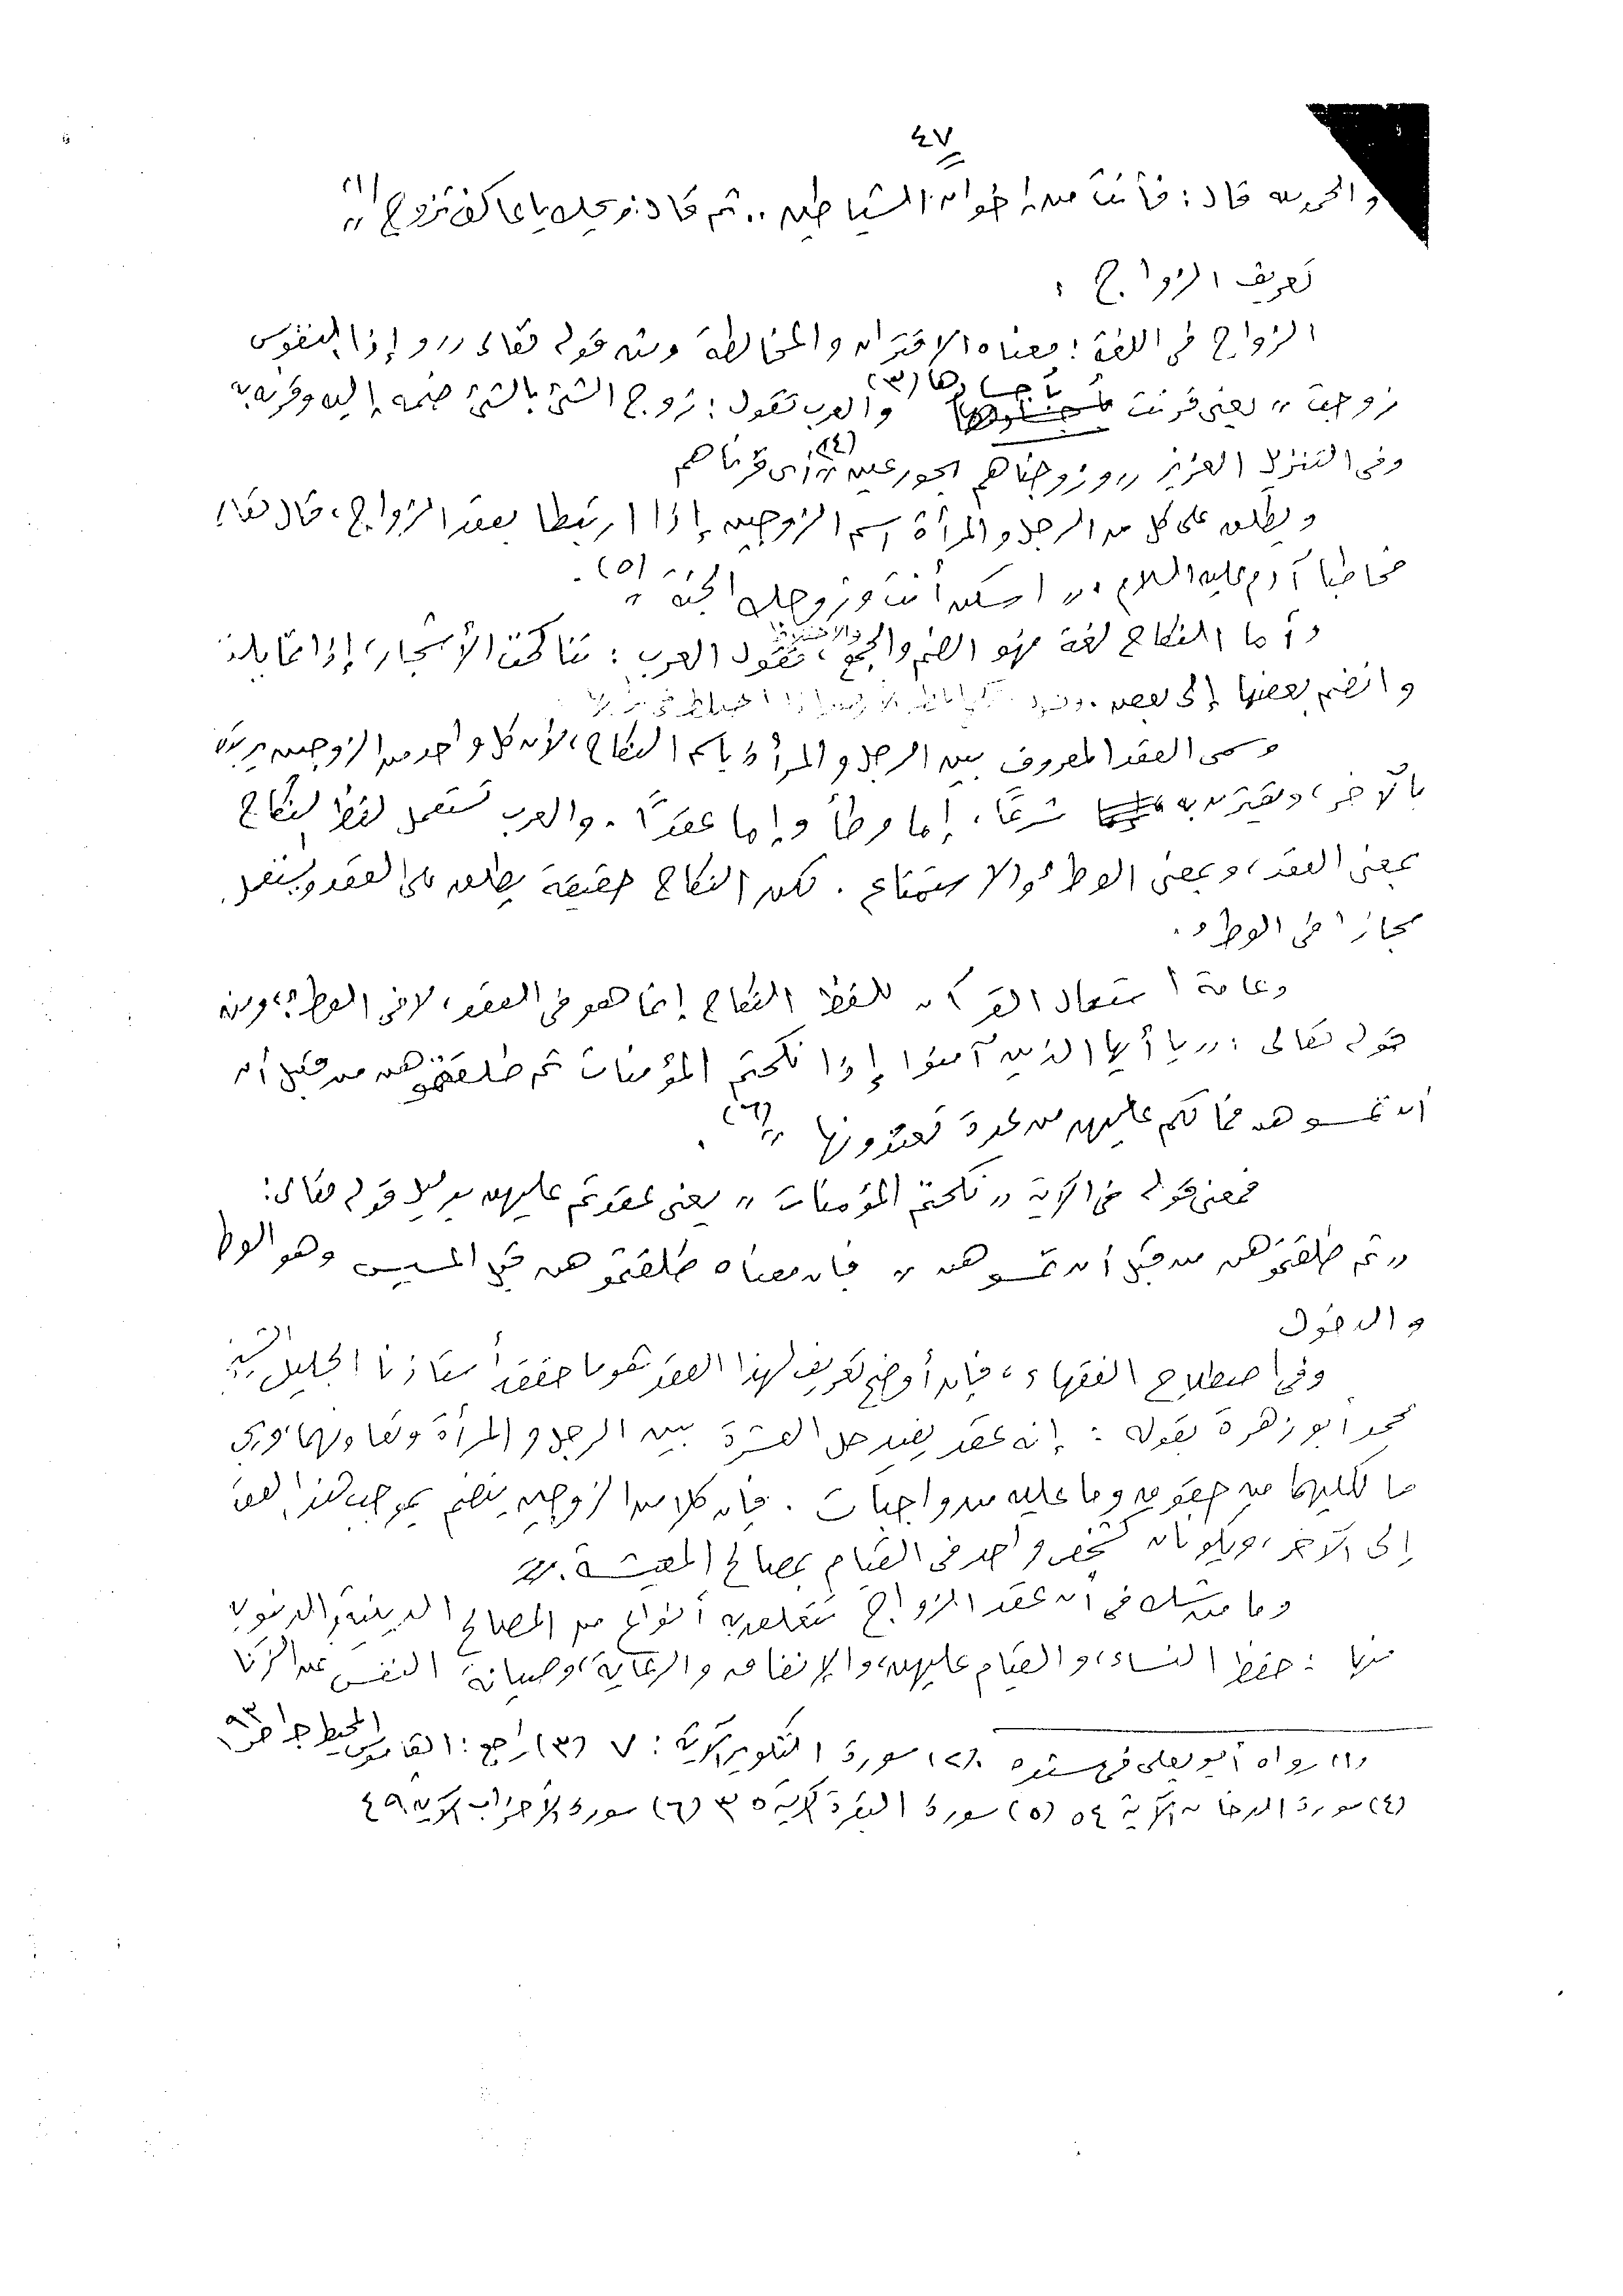 ٤٧
والحمد لله قال: فأنت من إخوان الشياطين .. ثم قال: ويحك يا عكاف تزوج (١) "
تعريف الزواج :
الزواج فى اللغة : معناه الاقتران والمخالطة ومنه قوله تعالى " وإذا النفوس
زوجت " يعنى قرنت بأجسادها (٣) والعرب تقول : زوج الشئ بالشئ ضمه إليه وقرنه به
وفى التنزيل العزيز " وزوجناهم بحور عين " (٤) أى قرناهم
ويطلق على كل من الرجل والمرأة اسم الزوجين إذا ارتبطا بعقد الزواج ، قال تعالى
مخاطبا آدم عليه السلام " اسكن أنت وزوجك الجنة " (٥) .
وأما النكاح لغة فهو الضم والجمع والاختلاط ، تقول العرب : تناكحت الأشجار ، إذا تمايلت
وانضم بعضها إلى بعض .
وسمى العقد المعروف بين الرجل والمرأة باسم النكاح ، لأن كل واحد من الزوجين يرتبط
بالآخر ، ويقترن به شرعًا ، إما وطأ وإما عقدًا . والعرب تستعمل لفظ النكاح
بمعنى العقد ، وبمعنى الوطئ والاستمتاع . لكن النكاح حقيقة يطلق على العقد ويستعمل
مجازا فى الوطء .
وعامة استعمال القرآن للفظ النكاح إنما هو فى العقد ، لا فى الوطئ ، ومنه
قوله تعالى : " يا أيها الذين آمنوا إذا نكحتم المؤمنات ثم طلقتموهن من قبل أن
أن تمسوهن فما لكم عليهن من عدة تعتدونها " (٦) .
فمعنى قوله فى الآية " نكحتم المؤمنات " يعنى عقدتم عليهن بدليل قوله تعالى :
" ثم طلقتموهن من قبل أن تمسوهن " فإن معناه طلقتموهن قبل المسيس وهو الوطأ
والدخول
وفى اصطلاح الفقهاء ، فإن أوضح تعريف لهذا العقد هو ما حققه أستاذنا الجليل الشيخ
محمد أبو زهرة بقوله : إنه عقد يفيد حل العشرة بين الرجل والمرأة وتعاونهما
ما لكليهما من حقوق وما عليه من واجبات . فإن كلا من الزوجين ينضم بموجب هذا العقد
إلى الآخر ، ويكونان كشخص واحد فى القيام بمصالح المعيشة . "
وما من شك فى أن عقد الزواج تتعلق به أنواع من المصالح الدينية والدنيوية
منها : حفظ النساء ، والقيام عليهن ، والإنفاق والرعاية ، وصيانة النفس عن الزنا
(١) رواه أبو يعلى فى مسنده (٢) سورة التكوير الآية : ٧ (٣) راجع : القاموس المحيط جـ١ ص١٩٣
(٤) سورة الدخان الآية ٥٤ (٥) سورة البقرة آية ٣٥ (٦) سورة الأحزاب الآية ٤٩